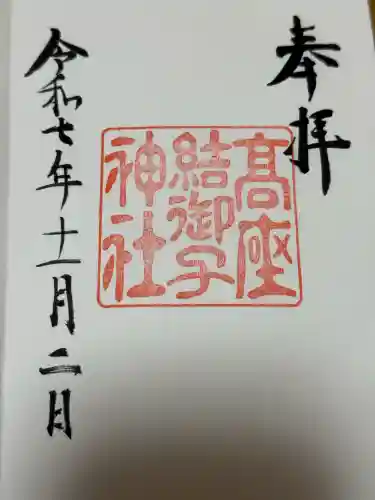 奉拝
髙座
結御子
神社
令和七年十一月二日